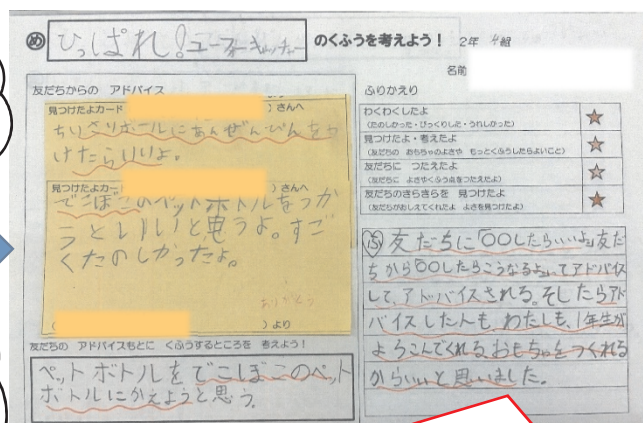 め ひっぱれ!ユーフォーキャッチャー のくふうを考えよう! 2年 4組
名前
友だちからの アドバイス
見つけたよカード
)さんへ
けたらいいよ。
見つけたよカード
)さんへ
でこぼこのペットボトルをつか
うといいと思うよ。すご
くたのしかったよ。
ありがとう
( )より
友だちの アドバイスもとに くふうするところを 考えよう!
ペットボトルをでこぼこのペット
ボトルにかえようと思う。
ふりかえり
わくわくしたよ
(たのしかった・びっくりした・うれしかった)
見つけたよ・考えたよ
(友だちの おもちゃのよさや もっとくふうしたらよいこと)
友だちに つたえたよ
(友だちに よさやくふう点をつたえたよ)
友だちのきらきらを 見つけたよ
(友だちがおしえてくれたよ よさを見つけたよ)
ふ 友だちに「〇〇したらいいよ」友だ
ちから「〇〇したらこうなるよ」ってアドバイス
して、アドバイスされる。そしたらアド
バイスした人も、わたしも、1年生が
よろこんでくれるおもちゃをつくれる
からいいと思いました。